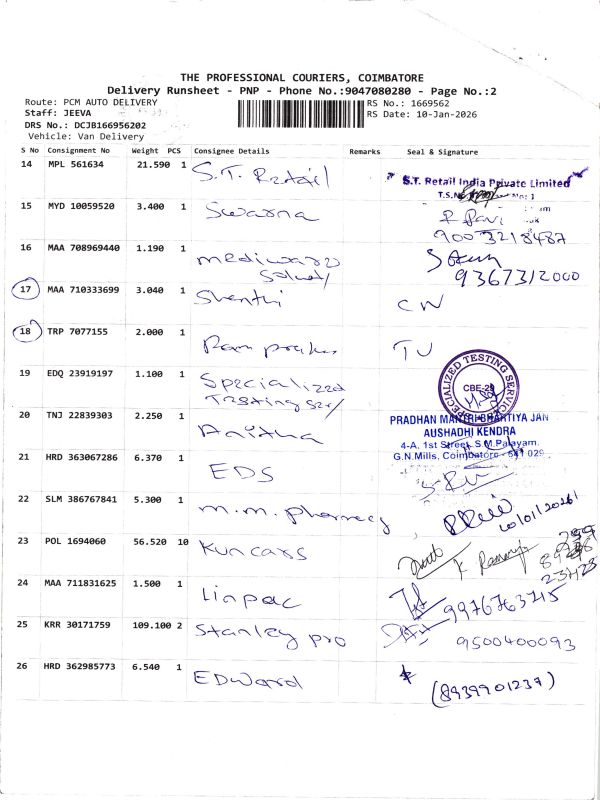 THE PROFESSIONAL COURIERS, COIMBATORE
Delivery Runsheet - PNP - Phone No.:9047080280 - Page No.:2
Route: PCM AUTO DELIVERY
RS No.: 1669562
Staff: JEEVA
RS Date: 10-Jan-2026
DRS No.: DCJB166956202
Vehicle: Van Delivery
S No Consignment No Weight PCS Consignee Details Remarks Seal & Signature
14 MPL 561634 21.590 1 S.T. Retail
S.T. Retail India Private Limited
15 MYD 10059520 3.400 1 Swarna
9003218487
16 MAA 708969440 1.190 1
9367312000
17 MAA 710333699 3.040 1 Shenthi CN
18 TRP 7077155 2.000 1 TU
19 EDQ 23919197 1.100 1 Specialized
Testing Ser/
SPECIALIZED TESTING SERVICE
20 TNJ 22839303 2.250 1 Anitha
PRADHAN MANTRI BHARTIYA JAN
AUSHADHI KENDRA
4-A, 1st Street, S.M.Palayam,
G.N.Mills, Coimbatore - 641 029
21 HRD 363067286 6.370 1 EDS
22 SLM 386767841 5.300 1 m.m. pharmacy
10/01/2026
23 POL 1694060 56.520 10
24 MAA 711831625 1.500 1 Linpac
9976763715
25 KRR 30171759 109.100 2 Stanley pro
9500400093
26 HRD 362985773 6.540 1 EDward
(8939901237)